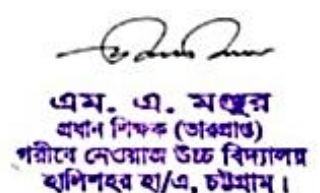 এম. এ. মঞ্জুর
প্রধান শিক্ষক (ভারপ্রাপ্ত)
গরীবে নেওয়াজ উচ্চ বিদ্যালয়
হালিশহর হা/এ, চট্টগ্রাম।